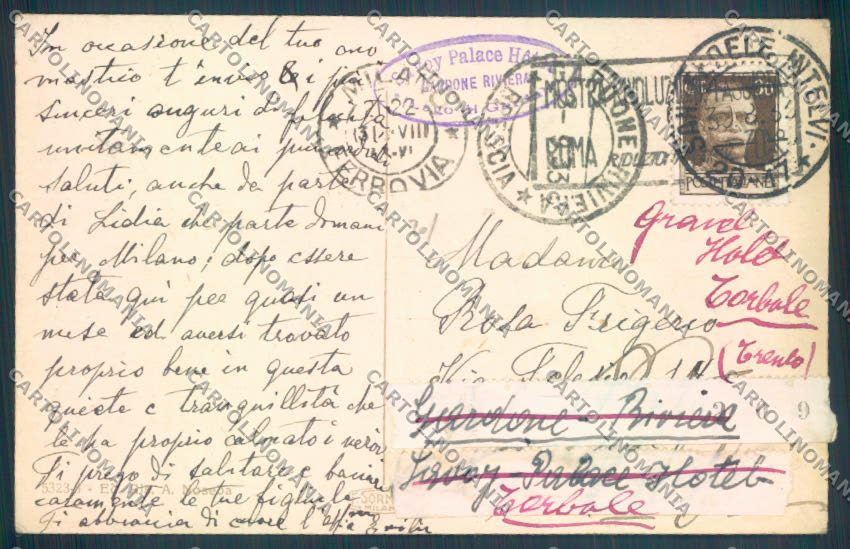 In occasione del tuo ono
mastico t'invio i più
sinceri auguri
unitamente ai più cordiali
saluti, anche da parte
di Lidia che parte domani
per Milano; dopo essere
stata qui per quasi un
mese ed aversi trovato
proprio bene in questa
quiete e tranquillità che
le ha proprio calmati i nervi
Ti prego di salutare e baciar
caramente le tue figliuole
Ti abbraccia di cuore l'aff.ma
Savoy Palace Hotel
GARDONE RIVIERA
LAGO DI GARDA
MILANO
FERROVIA
22
GARDONE RIVIERA
BRESCIA
MOSTRA RIVOLUZ
ROMA RIDUZIO
INTELVI
POSTE ITALIANE
Madama
Rosa Frigerio
Via
Grand
Hotel
Torbole
(Trento)
Gardone-Riviera
Savoy-Palace Hotel
Torbole
9
A. Noseda
SORM
MILANO
CARTOLINOMANIA